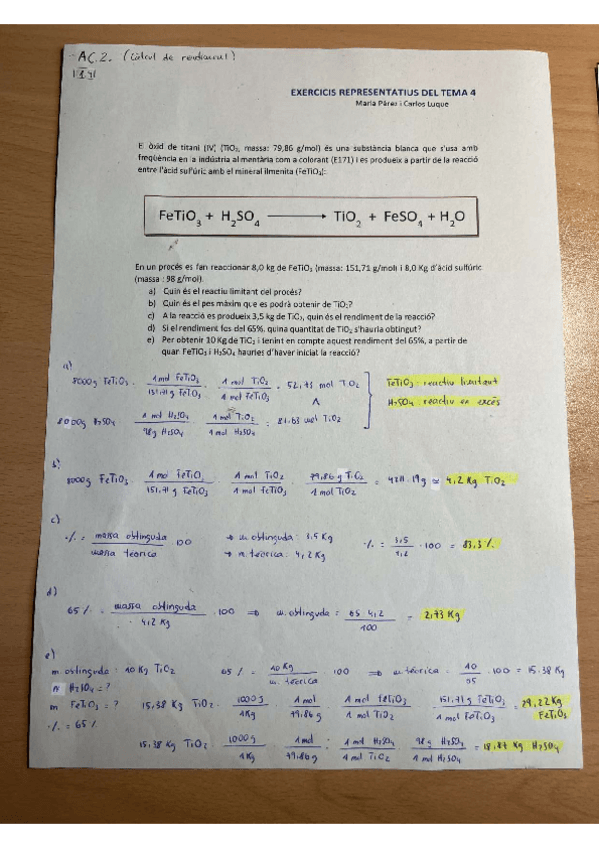 AC.2. (Càlcul de rendiment)
EXERCICIS REPRESENTATIUS DEL TEMA 4
Maria Pérez i Carlos Luque
El òxid de titani (IV) (TiO₂, massa: 79,86 g/mol) és una substància blanca que s'usa amb
freqüència en la indústria alimentària com a colorant (E171) i es produeix a partir de la reacció
entre l'àcid sulfúric amb el mineral ilmenita (FeTiO₃):
FeTiO₃ + H₂SO₄ ⟶ TiO₂ + FeSO₄ + H₂O
En un procés es fan reaccionar 8,0 kg de FeTiO₃ (massa: 151,71 g/mol) i 8,0 Kg d'àcid sulfúric
(massa : 98 g/mol).
a) Quin és el reactiu limitant del procés?
b) Quin és el pes màxim que es podrà obtenir de TiO₂?
c) A la reacció es produeix 3,5 kg de TiO₂, quin és el rendiment de la reacció?
d) Si el rendiment fos del 65%, quina quantitat de TiO₂ s'hauria obtingut?
e) Per obtenir 10 Kg de TiO₂ i tenint en compte aquest rendiment del 65%, a partir de
quan FeTiO₃ i H₂SO₄ hauries d'haver iniciat la reacció?
a)
8000g FeTiO₃ · 1 mol FeTiO₃ / 151,71 g FeTiO₃ · 1 mol TiO₂ / 1 mol FeTiO₃ = 52,73 mol TiO₂
FeTiO₃: reactiu limitant
∧
8000g H₂SO₄ · 1 mol H₂SO₄ / 98g H₂SO₄ · 1 mol TiO₂ / 1 mol H₂SO₄ = 81,63 mol TiO₂
H₂SO₄: reactiu en excés
b)
8000g FeTiO₃ · 1 mol FeTiO₃ / 151,71 g FeTiO₃ · 1 mol TiO₂ / 1 mol FeTiO₃ · 79,86 g TiO₂ / 1 mol TiO₂ = 4211.19g ≈ 4,2 Kg TiO₂
c)
·/. = massa obtinguda / massa teòrica · 100 → m obtinguda: 3,5 Kg ·/. = 3,5 / 4,2 · 100 = 83,3 ·/.
→ m. teòrica: 4,2 Kg
d)
65 ·/. = massa obtinguda / 4,2 Kg · 100 ⇒ m. obtinguda = 65 · 4,2 / 100 = 2,73 Kg
e)
m obtinguda: 10 Kg TiO₂ 65 ·/. = 10 Kg / m. teòrica · 100 ⇒ m. teòrica: 10 / 65 · 100 = 15.38 Kg
m H₂SO₄ = ?
m FeTiO₃ = ? 15,38 Kg TiO₂ · 1000g / 1Kg · 1 mol / 79,86 g · 1 mol FeTiO₃ / 1 mol TiO₂ · 151,71 g FeTiO₃ / 1 mol FeTiO₃ = 29,22 Kg FeTiO₃
·/. = 65 ·/.
15,38 Kg TiO₂ · 1000g / 1Kg · 1 mol / 79,86g · 1 mol H₂SO₄ / 1 mol TiO₂ · 98 g H₂SO₄ / 1 mol H₂SO₄ = 18,87 Kg H₂SO₄